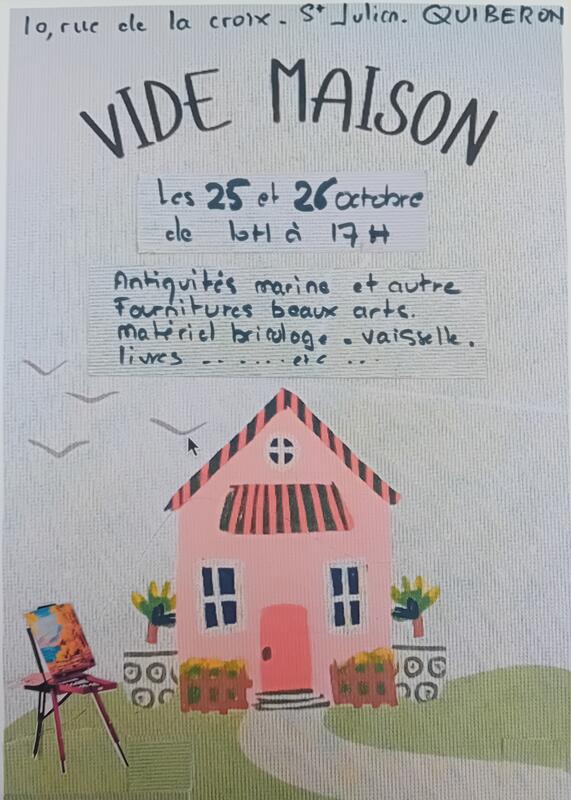 10, rue de la croix - St Julien. QUIBERON
VIDE MAISON
Les 25 et 26 octobre
de 10H à 17H
Antiquités marine et autre
Fournitures beaux arts.
matériel bricolage. vaisselle.
livres ........ etc ...